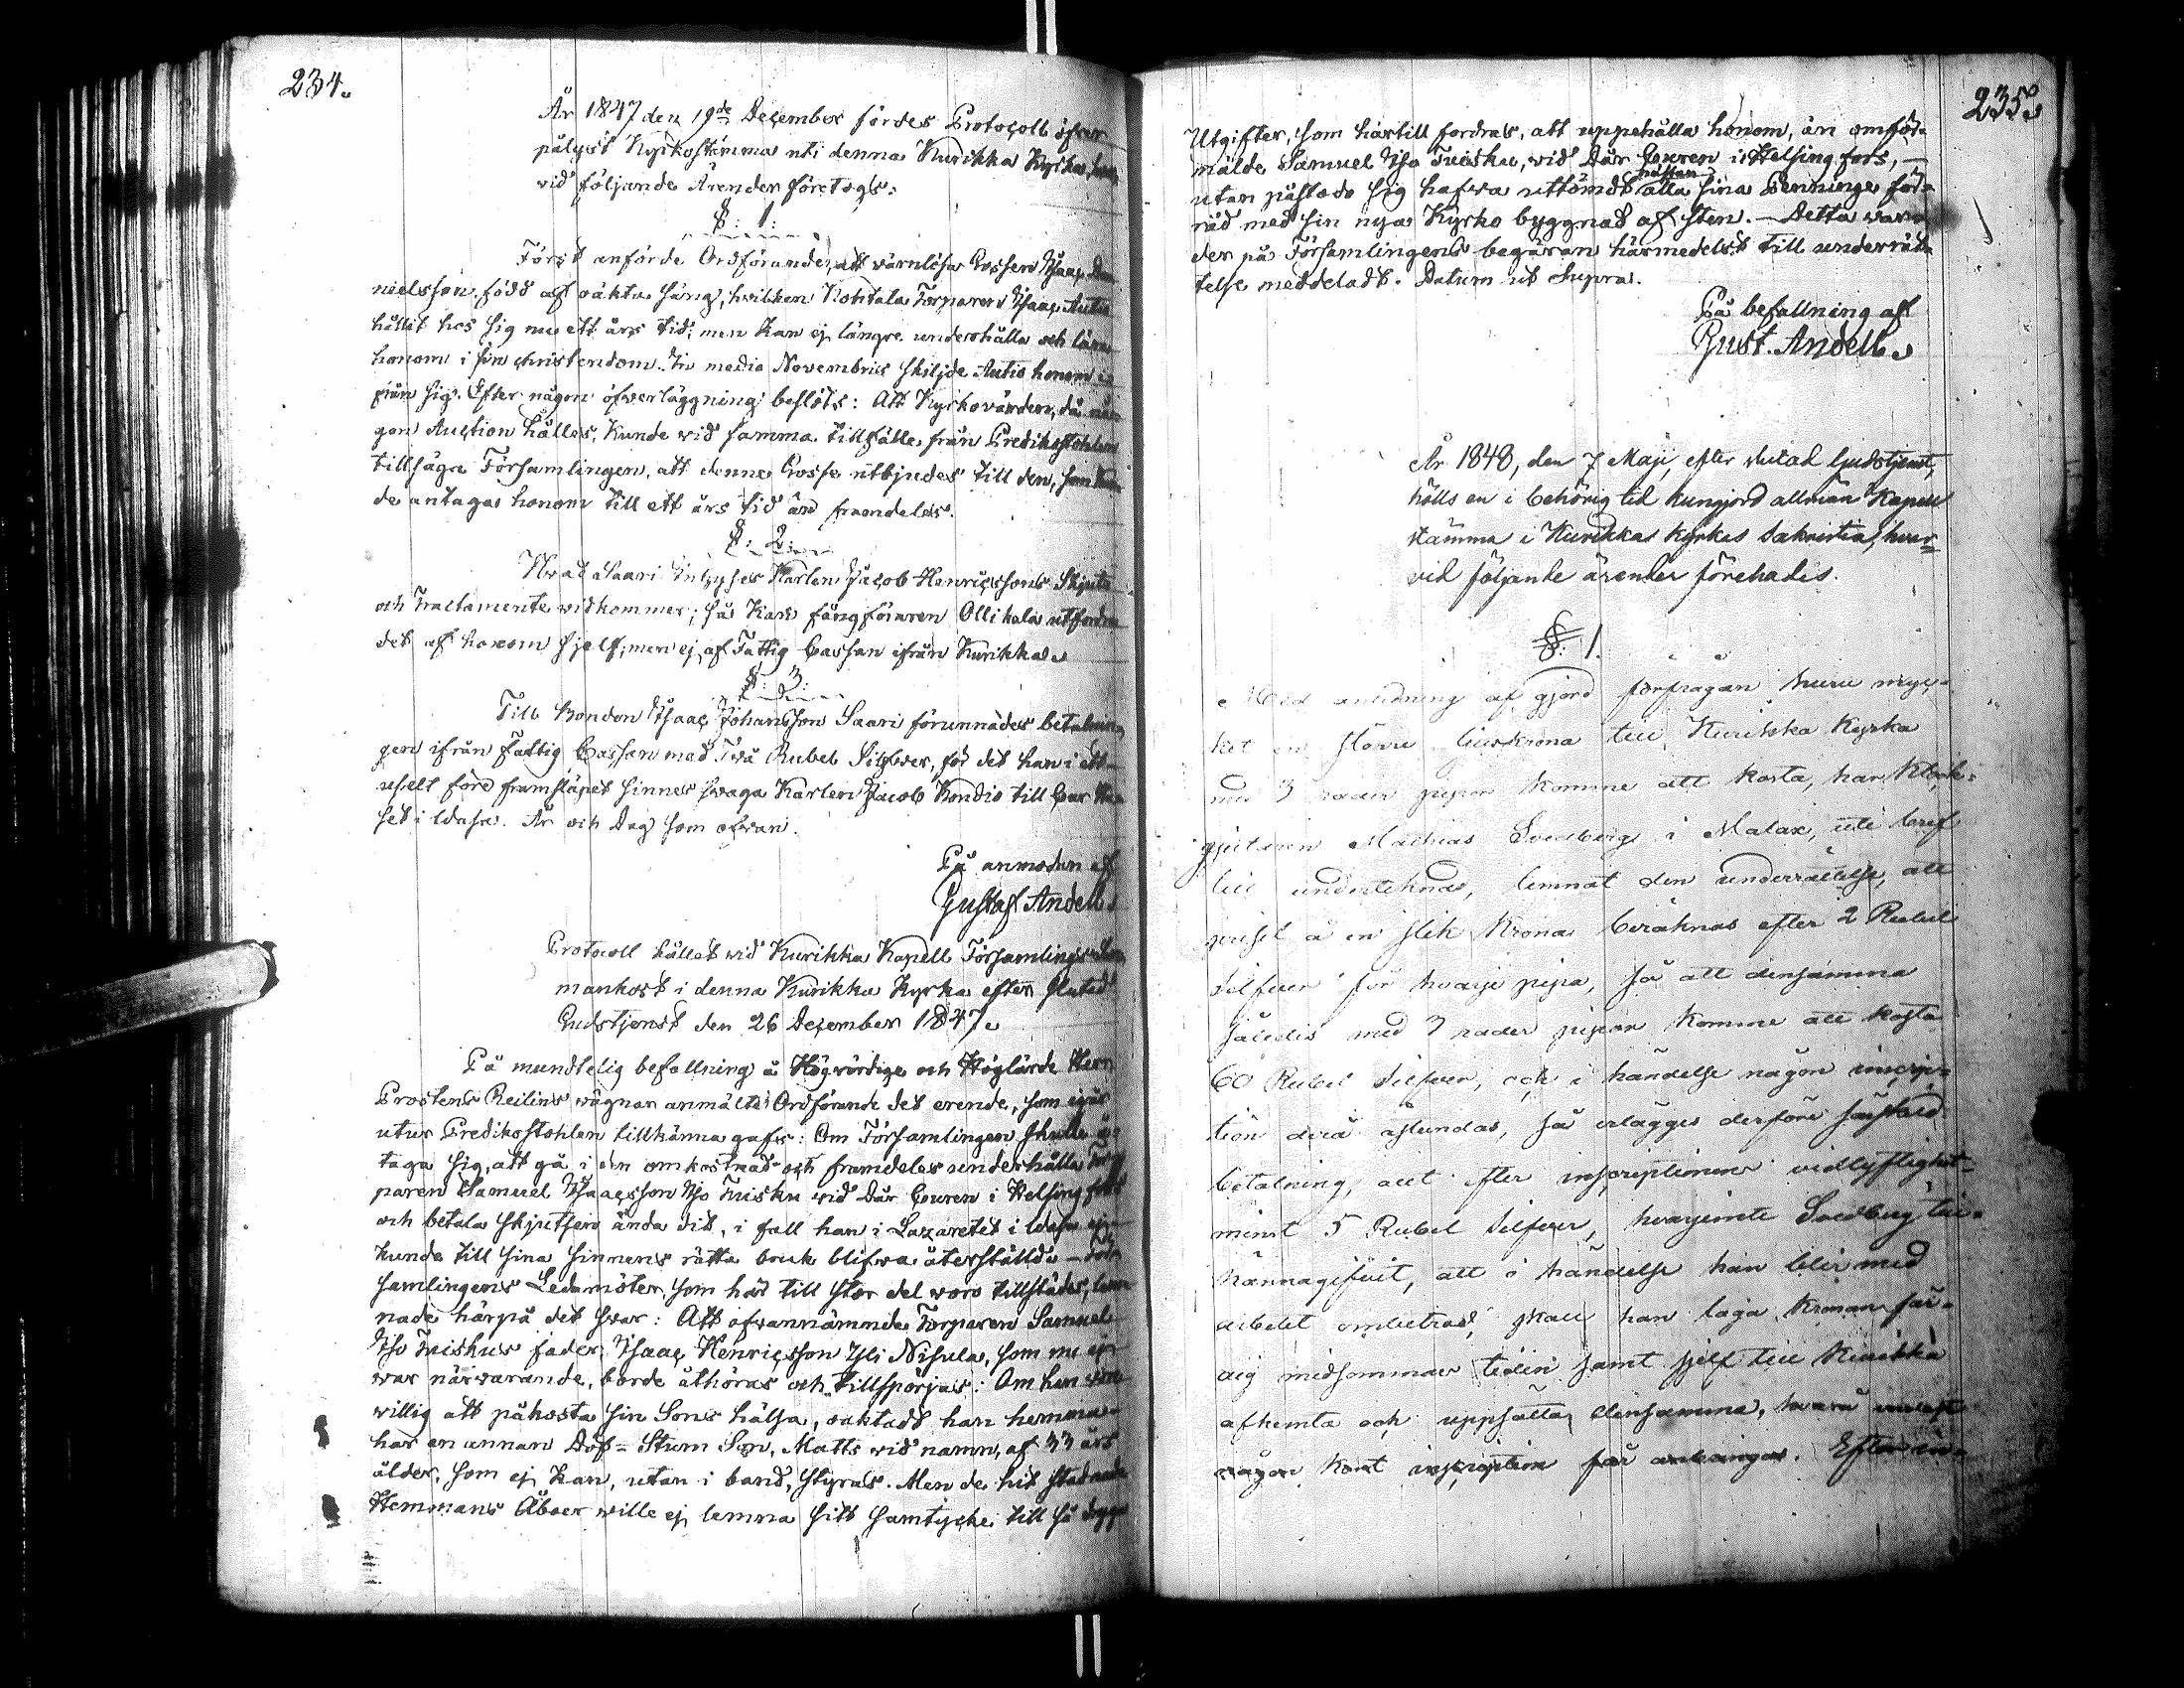 234.
År 1847 den 19de December fördes Protocoll öfver
pålyst Kyrkostämma uti denna Kurikka Kyrka, hvar
vid följande Ärender företogs:
§: 1:
Först anförde Ordförande, att värnlösa Gossen Isaac Da
nielsson, född af oäkta säng, hvilken Kohtala Torparen Isaac Autio
hållit hos sig nu ett års tid; men kan ej längre underhålla och lära
honom i sin christendom. In medio Novembris skiljde Autio honom i
från sig. Efter någon öfverläggning beslöts: Att Kyrkovärden, då nå
gon Auction hålles, kunde vid samma tillfälle från Predikostohlen
tillsäga Församlingen, att denne Gosse utbjudes till den, som kun
de antaga honom till ett års tid än framdeles.
§: 2:
Hvad Saari Inhyses Karlen Jacob Henricssons Skjuts
och Tractamente vidkommer; så kan fångföraren Ollikala utfordra
det af honom sjelf; men ej af Fattig Cassan ifrån Kurikka.
§: 3:
Till Bonden Isaac Johansson Saari förunnades betalnin
gen ifrån Fattig Cassan med Två Rubel Silfver, för det han i ett
uselt före framsläpat sinnes svaga Karlen Jacob Kondio till Cur Hu
set i Wasa. År och Dag som ofvan.
På anmodan af
Gustaf Andell.
Protocoll hållet vid Kurikka Kapell Församlings Sam
mankost i denna Kurikka Kyrka efter slutad
Gudstjenst den 26 December 1847.
På mundtelig befallning å Högvördige och Höglärde Herr
Prostens Reilins vägnar anmälte Ordförande det erende, som ifrån
utur Predikostohlen tillkänna gafs: Om Församlingen skulle å=
taga sig, att gå i den omkostnad och framdeles underhålla Tor
paren Samuel Isaacsson Iso Tuisku vid Dår Curen i Helsingfors
och betala skjutsen ända dit, i fall han i Lazaretet i Wasa ej
kunde till sina sinnens rätta bruk blifva återställd. – För
samlingens Ledamöter, som här till stor del voro tillstädes, lem
nade härpå det svar: Att ofvannämnde Torparen Samuel
Iso Tuiskus fader, Isaac Henricsson Yli Nisula, som nu ej
var närvarande, borde åthöras och tillspörjas: Om han vore
villig att påkosta sin Sons hälsa, oaktadt han hemma
har en annan Döf=Stum Son, Matts vid namn, af 33 års
ålder, som ej kan, utan i band, styras. Men de hit stadande
Hemmans Åboer ville ej lemna sitt samtycke till så dryga
235.
Utgifter, som härtill fordras, att uppehålla honom, än omför=
mälde Samuel Iso Tuisku, vid Dår Curen i Helsingfors, –
utan påstods sig hafva uttömdt nästan alla sina Penninge för=
råd med sin nya Kyrko byggnad af sten. – Detta var
der på Församlingens begäran härmedelst till underrät=
telse meddeladt. Datum ut Supra.
På befallning af
Gust. Andell.
År 1848, den 7 Maji, efter slutad Gudstjenst,
hölls en i behörig tid kungjord allmän Kapell
stämma i Kurikkas kyrkas Sakristia, hvar=
vid följande ärender förehades.
§: 1.
Med anledning af gjord förfrågan huru myc=
ket en större ljuskrona till Kurikka Kyrka
med 3 rader pipor komme att kosta, har Klock=
gjutaren Mathias Svedberg i Malax, uti bref
till undertecknad, lemnat den underrättelse, att
priset å en slik Krona beräknas efter 2 Rubel
Silfver för hvarje pipa, så att densamma
således med 3 rader pipor komme att kosta
60 Rubel Silfver, och i händelse någon inscrip=
tion derå åstundas, så erlägges derföre särskild
betalning, allt efter inscriptionens vidlyftighet
minst 5 Rubel Silfver, hvarjemte Svedberg till=
kännagifvit, att i händelse han blir med
arbetet ombetrodd, skall han laga Kronan fär=
dig midsommars tiden samt sjelf till Kurikka
afhemta och uppsätta densamma, hvarå endast
någon kort inscription får anbringas. Efter